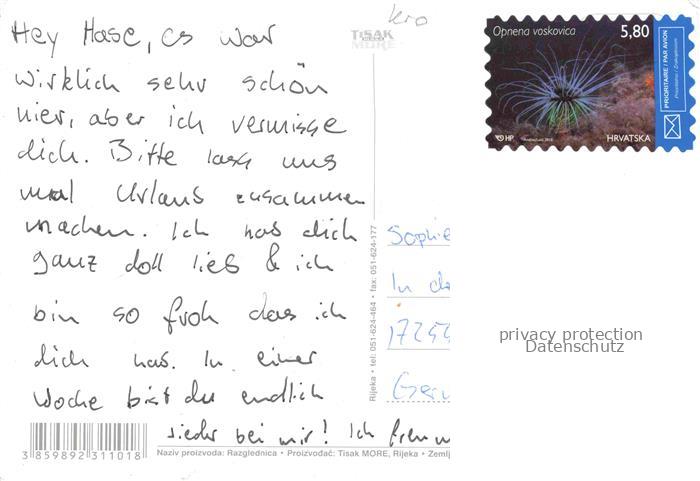 Hey Hase, es war
wirklich sehr schön
hier, aber ich vermisse
dich. Bitte lass uns
mal Urlaub zusammen
machen. Ich hab dich
ganz doll lieb & ich
bin so froh dass ich
dich hab. In einer
Woche bist du endlich
wieder bei mir! Ich freu
kro
TiSAK
MORE
Opnena voskovica
5,80
PRIORITAIRE / PAR AVION
Prioritetno / Zrakoplovom
HP
HRVATSKA
Sophie
In d
1725
Ger
privacy protection
Datenschutz
Rijeka • tel: 051-624-464 • fax: 051-624-177
3 859892 311018
Naziv proizvoda: Razglednica • Proizvođač: Tisak MORE, Rijeka • Zemlj